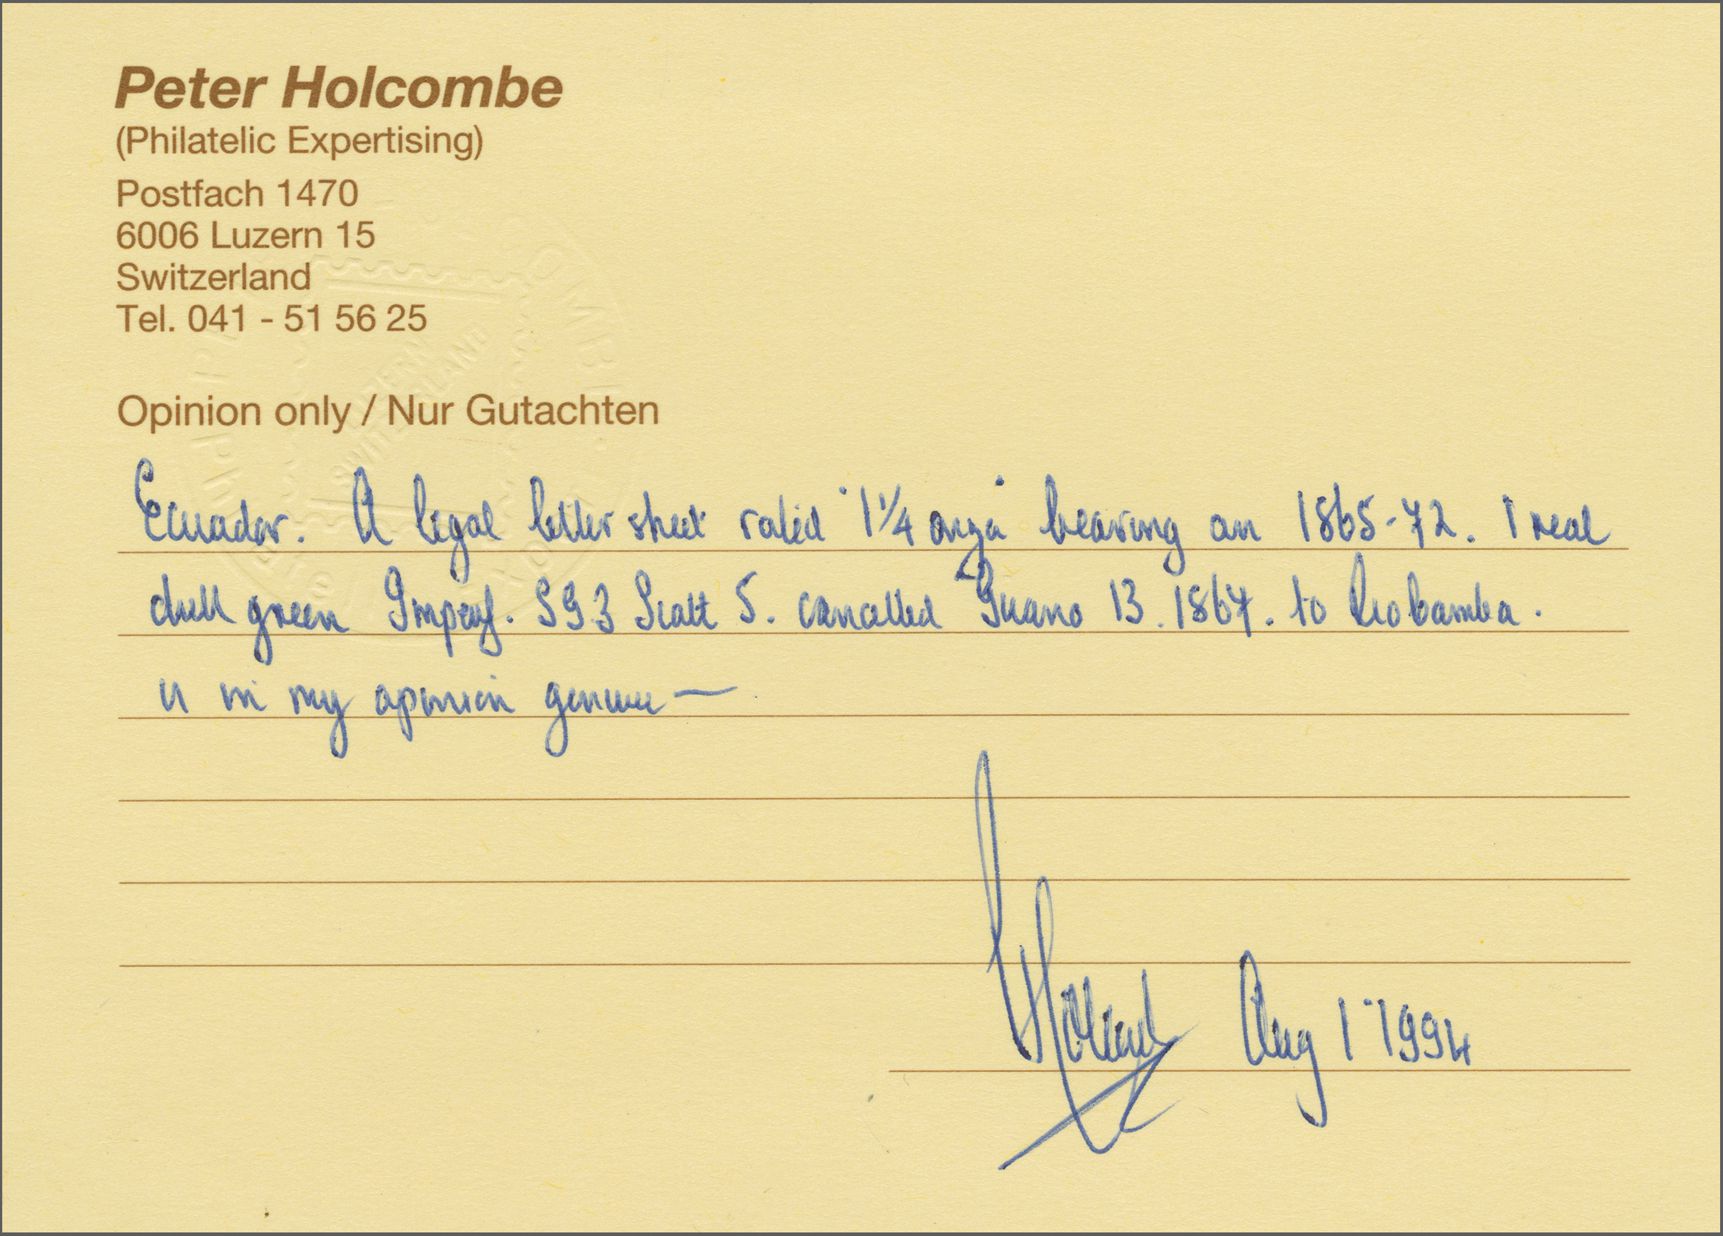 Peter Holcombe
(Philatelic Expertising)
Postfach 1470
6006 Luzern 15
Switzerland
Tel. 041 - 51 56 25
Opinion only / Nur Gutachten
Ecuador. A legal letter sheet rated "1¼ onza" bearing an 1865-72. 1 real
dull green Imperf. SG3 Scott 5. cancelled Guano 13.1867. to Riobamba.
is in my opinion genuine —
Aug 1 1994
LUZERN
SWITZERLAND